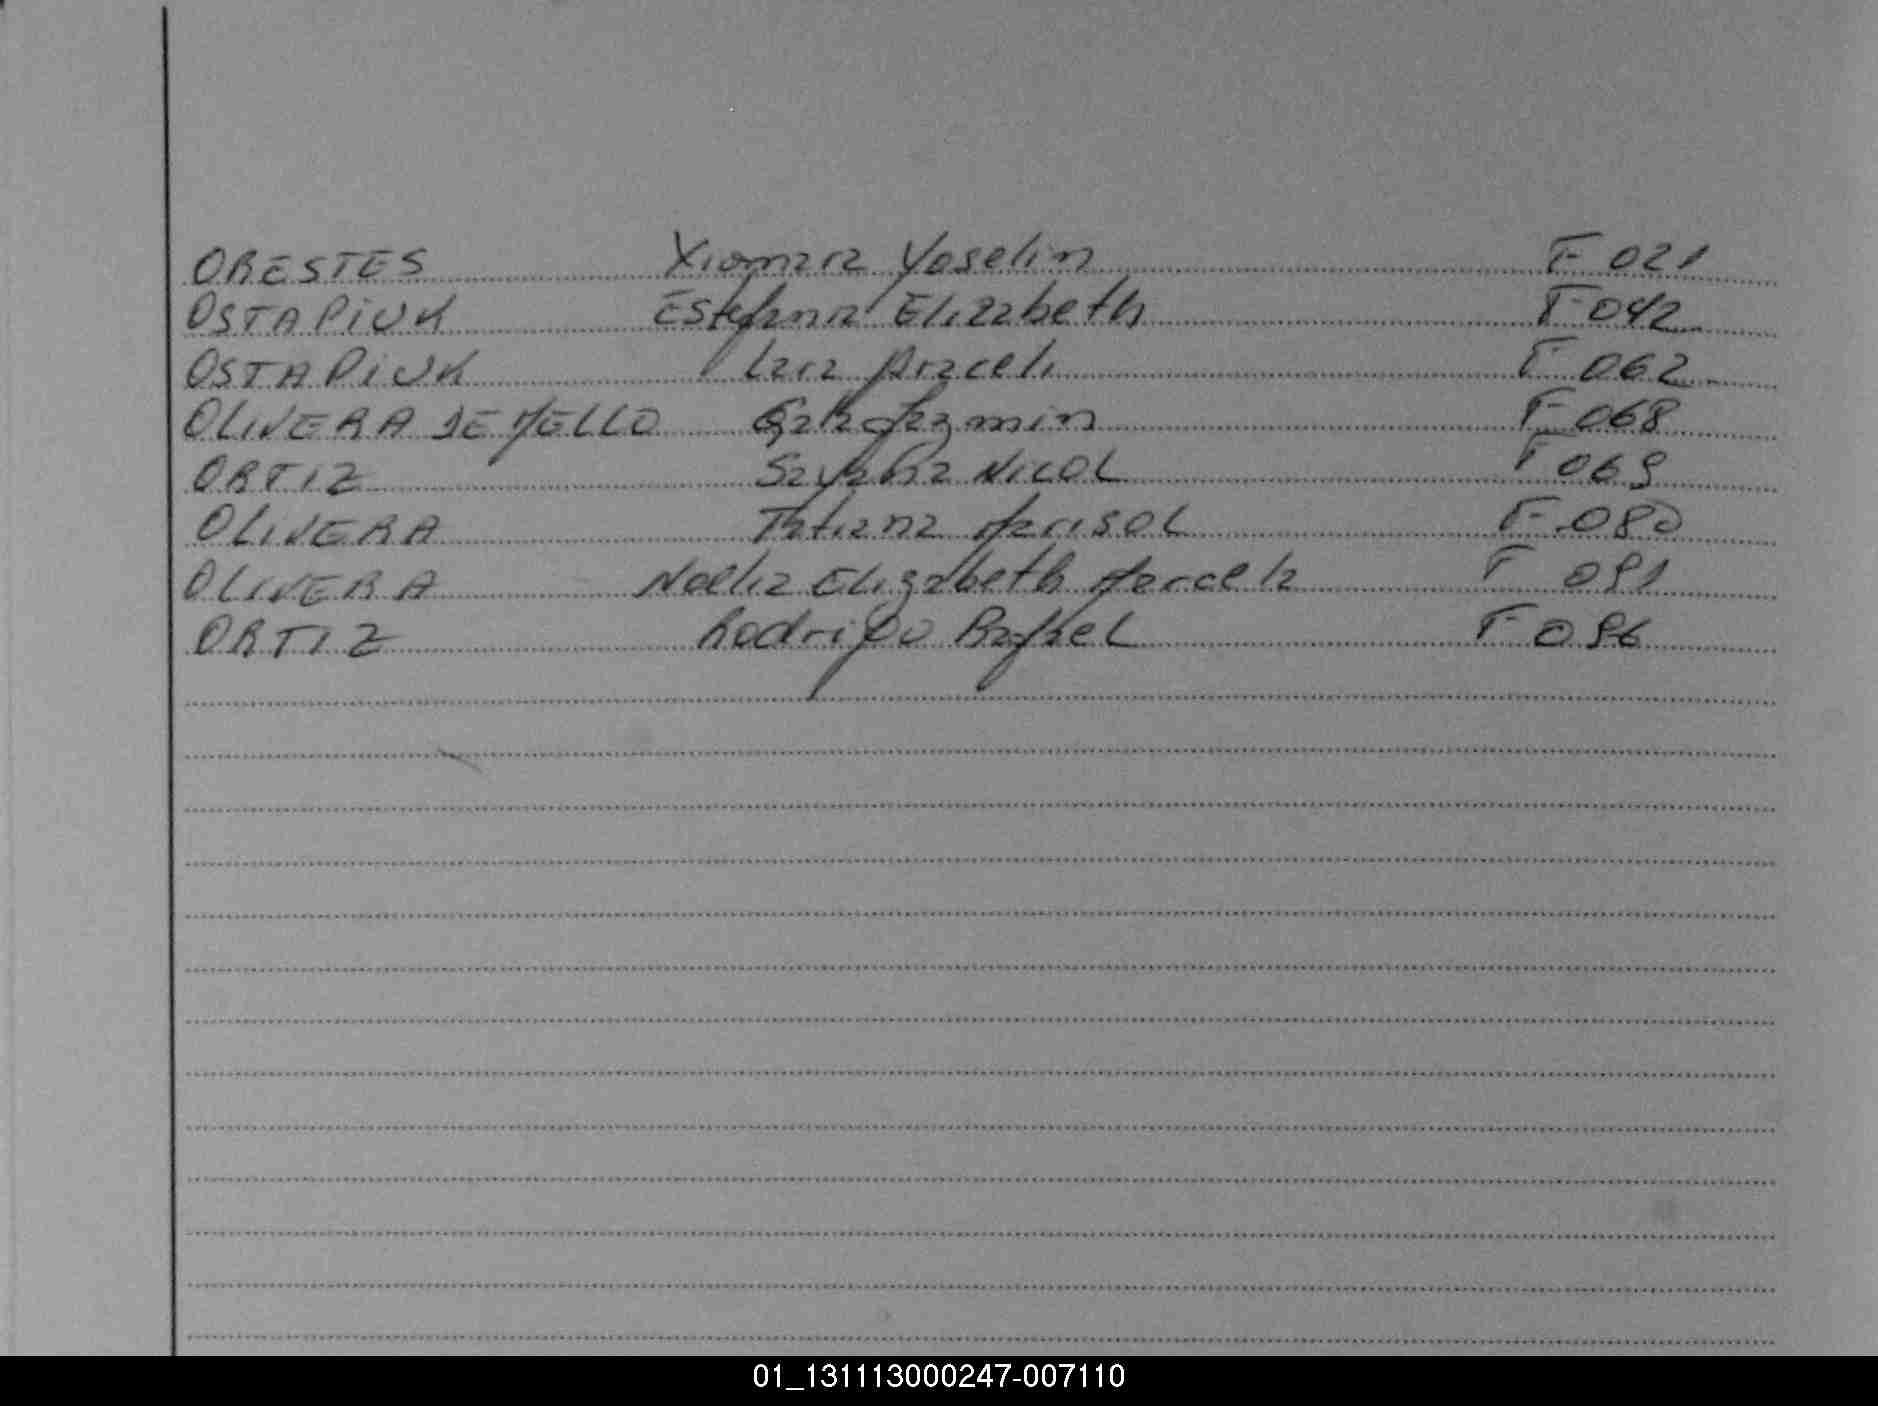 ORESTES Xiomara Yoselin F 021
OSTAPIUK Estefania Elizabeth F 042
OSTAPIUK Lara Araceli F 062
OLIVERA DE MELLO Jazmin F 068
ORTIZ Nicol F 069
OLIVERA Tatiana Marisol F 080
OLIVERA Noelia Elizabeth Marcela F 091
ORTIZ Rodrigo Rafael F 096
01_131113000247-007110